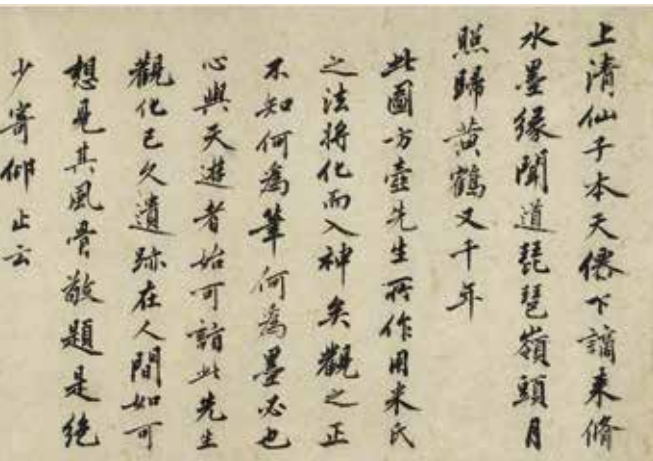 上清仙子本天僊下謫来脩
水墨縁聞道琵琶嶺頭月
照歸黄鶴又千年
此圖方壺先生所作用米氏
之法將化而入神矣觀之正
不知何為筆何為墨必也
心與天遊者始可詣此先生
觀化已久遺跡在人間如可
想見其風骨敬題是絶
少寄仰止云